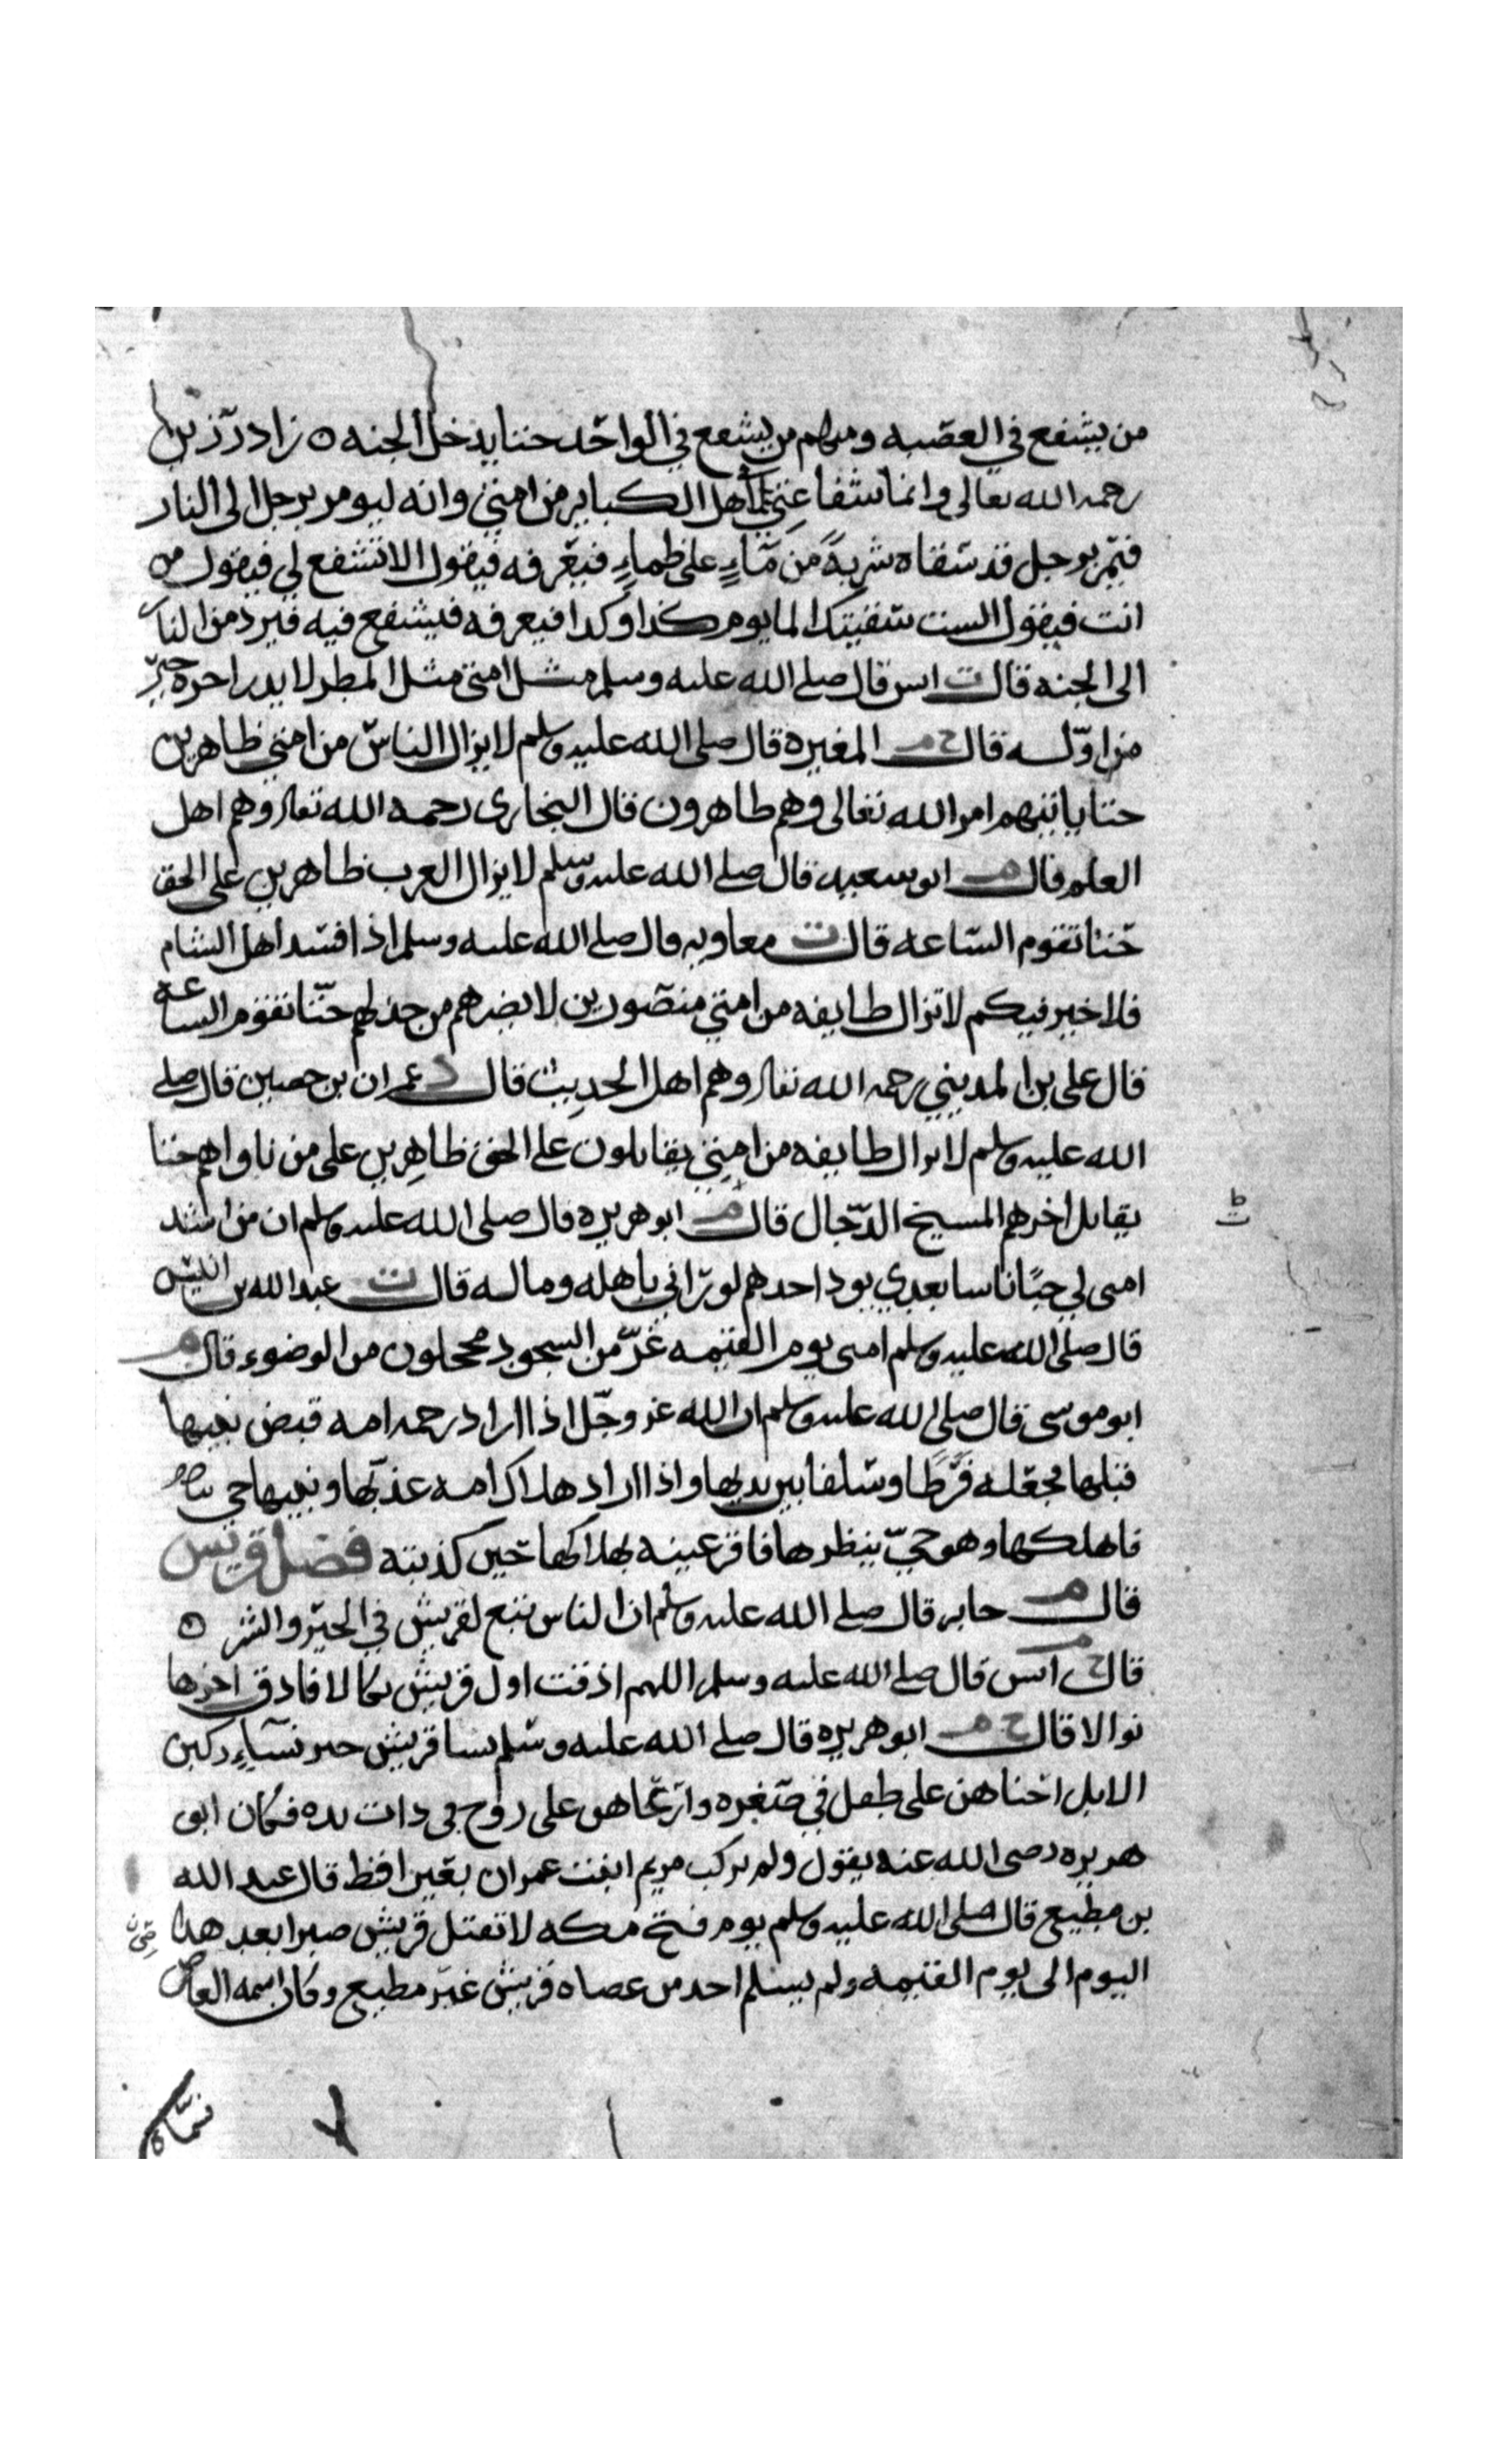 من يشفع في العصبه ومنهم من يشفع في الواحد حتا يدخل الجنه ه زاد رزين
رحمه الله تعالى وانما شفاعتي لاهل الكباير من امتي وانه ليومر برجل الى النار
فيمر برجل قد سقاه شربة من ماء على ظماء فيعرفه فيقول الا تشفع لي فيقول من
انت فيقول الست سقيتك الما يوم كذا وكذا فيعرفه فيشفع فيه فيرد من النار
الى الجنه قال ت انس قال صلى الله عليه وسلم مثل امتي مثل المطر لا يدرا اخره خير
من اوله قال خ م المغيره قال صلى الله عليه وسلم لا يزال الناس من امتي ظاهرين
حتا ياتيهم امر الله تعالى وهم ظاهرون قال البخاري رحمه الله تعالى وهم اهل
العلم قال م ابو سعيد قال صلى الله عليه وسلم لا يزال العرب ظاهرين على الحق
حتا تقوم الساعه قال ت معاويه قال صلى الله عليه وسلم اذا فسد اهل الشام
فلا خير فيكم لا تزال طايفه من امتي منصورين لا يضرهم من خذلهم حتا تقوم الساعه
قال على بن المديني رحمه الله تعالى وهم اهل الحديث قال د عمران بن حصين قال صلى
الله عليه وسلم لا يزال طايفه من امتي يقاتلون على الحق ظاهرين على من ناواهم حتا
يقاتل اخرهم المسيخ الدجال قال م ابو هريره قال صلى الله عليه وسلم ان من اشد
امتى لي حبا ناسا بعدي يود احدهم لو رآني باهله وماله قال ت عبد الله بن
قال صلى الله عليه وسلم امتى يوم القيمه غر من السجود محجلون من الوضوء قال م
ابو موسى قال صلى الله عليه وسلم ان الله عز وجل اذا اراد رحمه امه قبض نبيها
قبلها فجعله فرطا وسلفا بين يديها واذا اراد هلاك امه عذبها ونبيها حي
فاهلكها وهو حي ينظرها فاقر عينه بهلاكها حين كذبته فضل قريش
قال م جابر قال صلى الله عليه وسلم ان الناس تبع لقريش في الخير والشر ه
قال خ م انس قال صلى الله عليه وسلم اللهم اذقت اول قريش نكالا فاذق اخرها
نوالا قال خ م ابو هريره قال صلى الله عليه وسلم نسا قريش خير نساء ركبن
الابل احناهن على طفل في صغره وارعاهن على زوج في ذات يده فكان ابو
هريره رضى الله عنه يقول ولم تركب مريم ابنت عمران بعيرا قط قال عبد الله
بن مطيع قال صلى الله عليه وسلم يوم فتح مكه لا تقتل قريش صبرا بعد هذا
اليوم الى يوم القيمه ولم يسلم احد من عصاه قريش غير مطيع وكان اسمه العاص